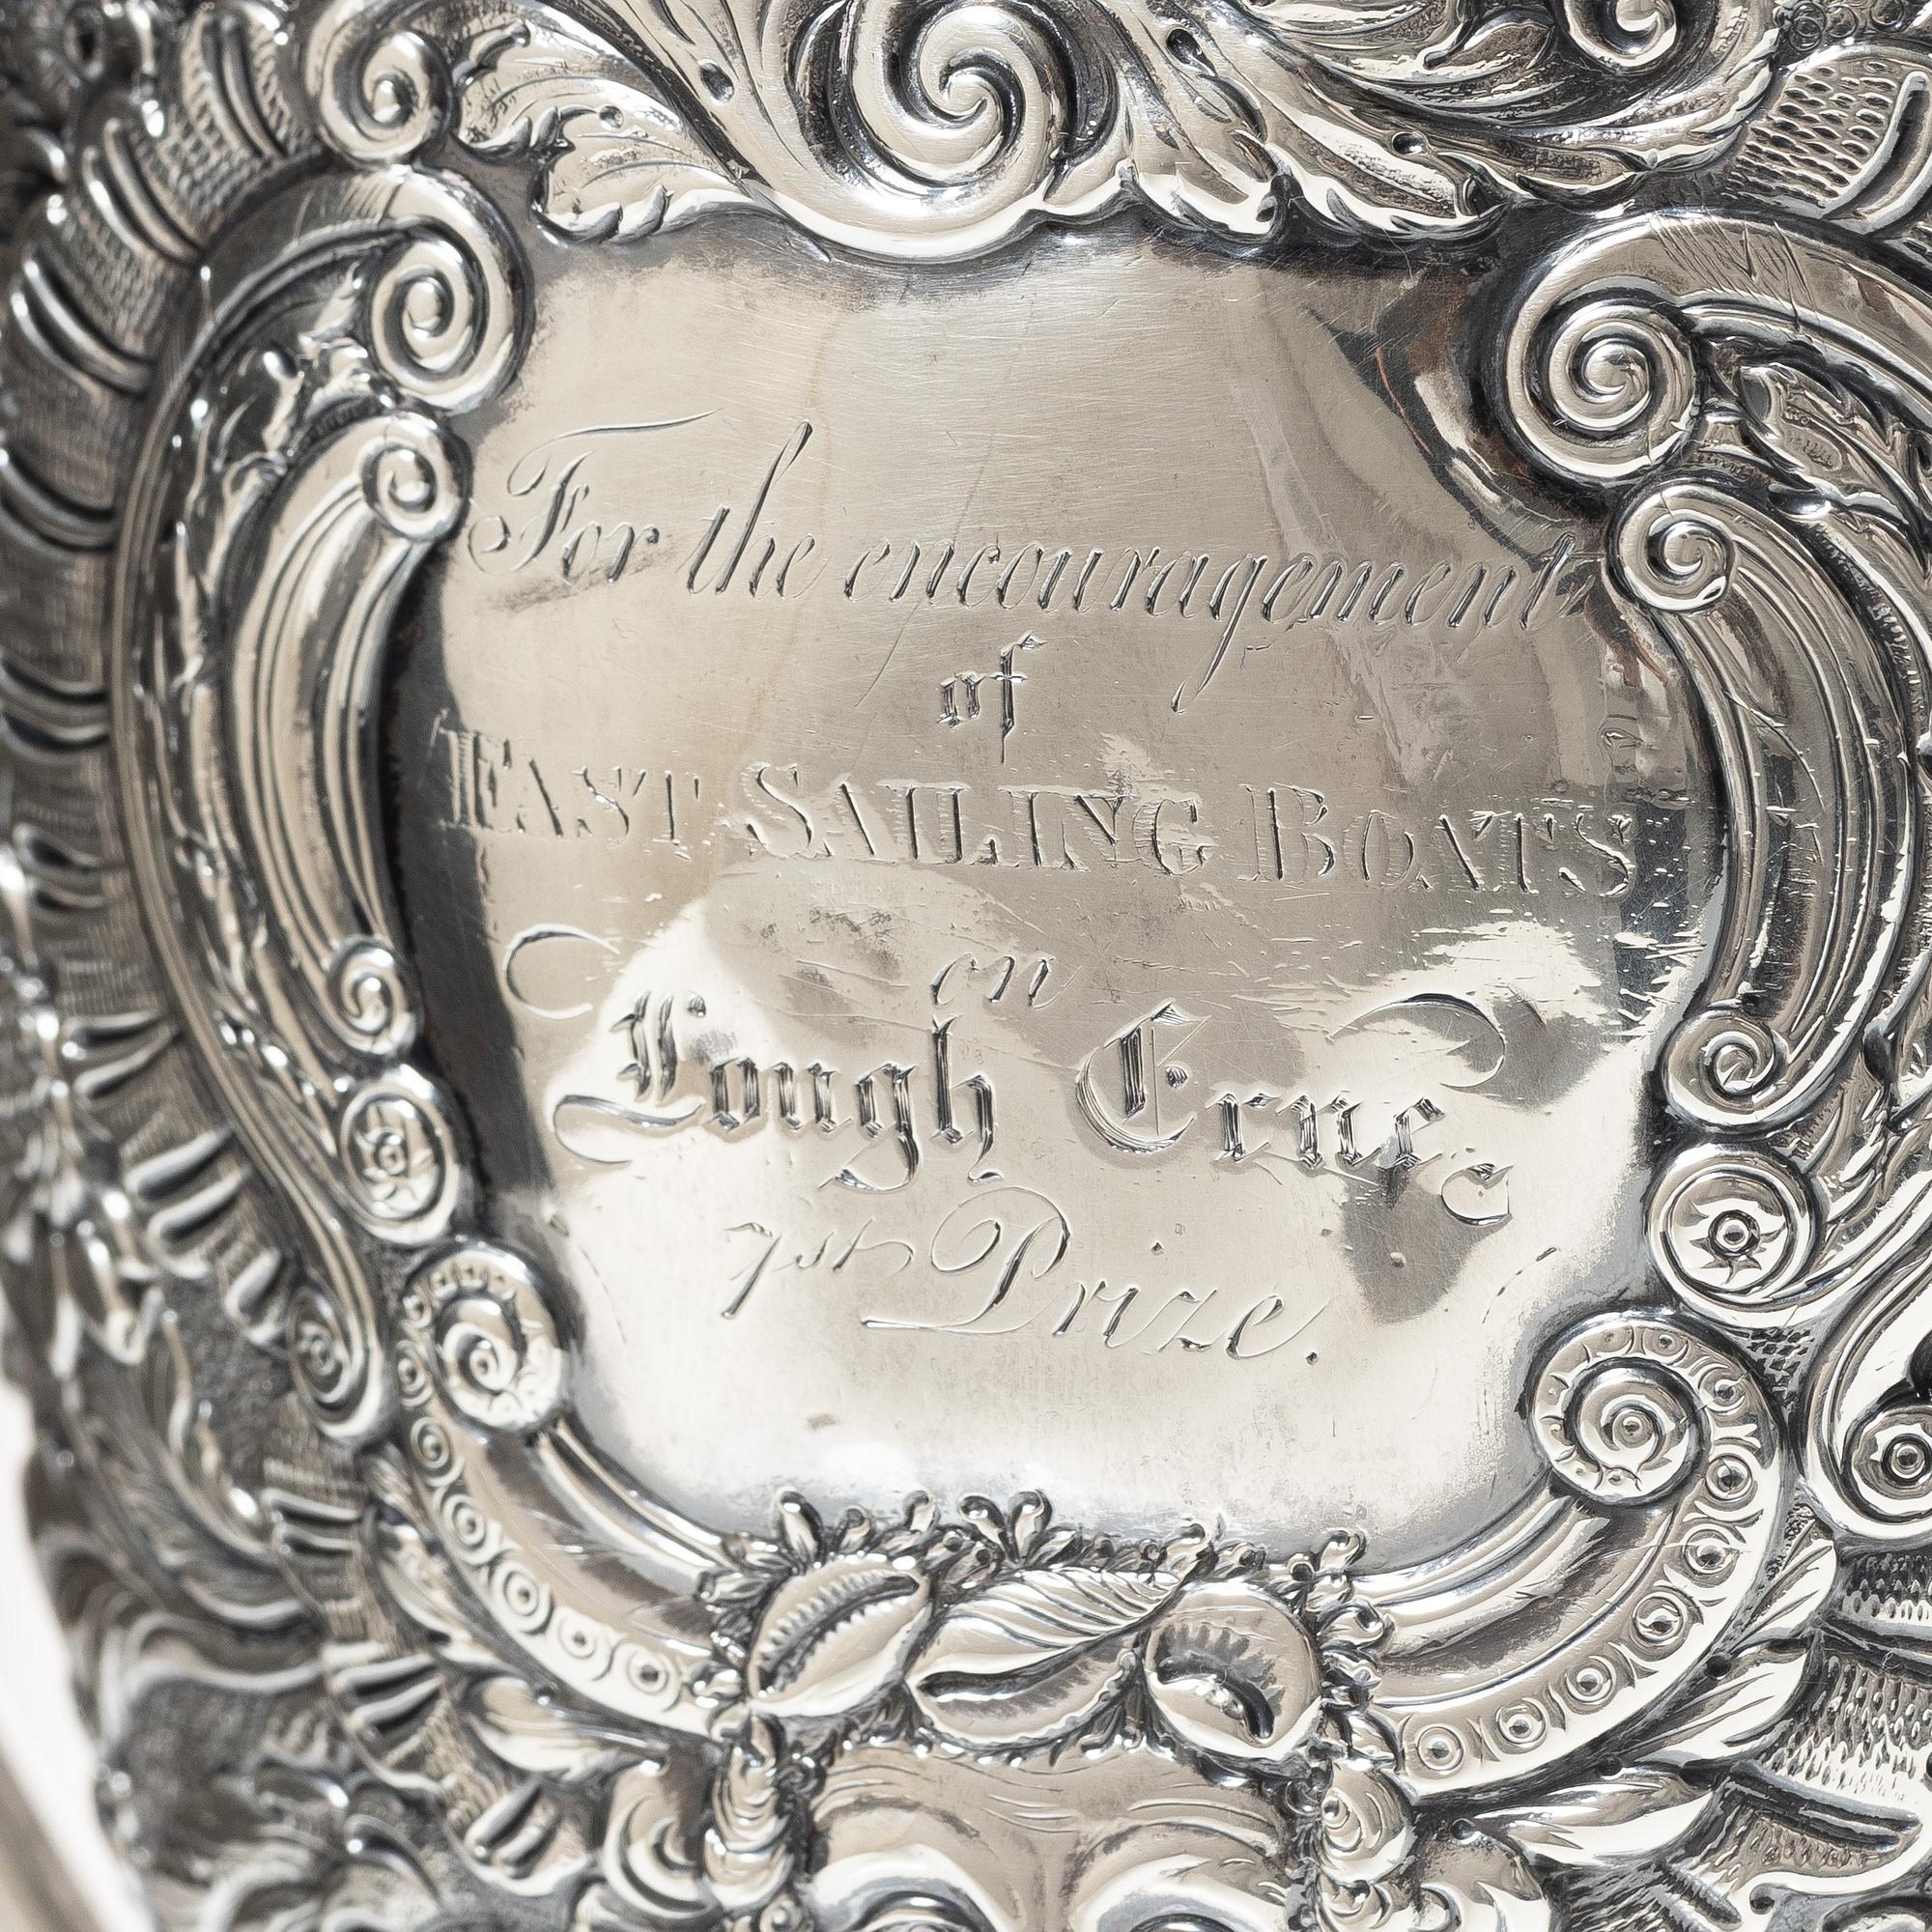 For the encouragement
of
FAST SAILING BOATS
on
Lough Erne
1st Prize.